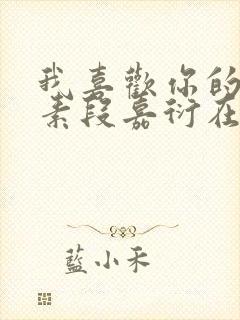 我喜歡你的
素段嘉衍在
藍小禾